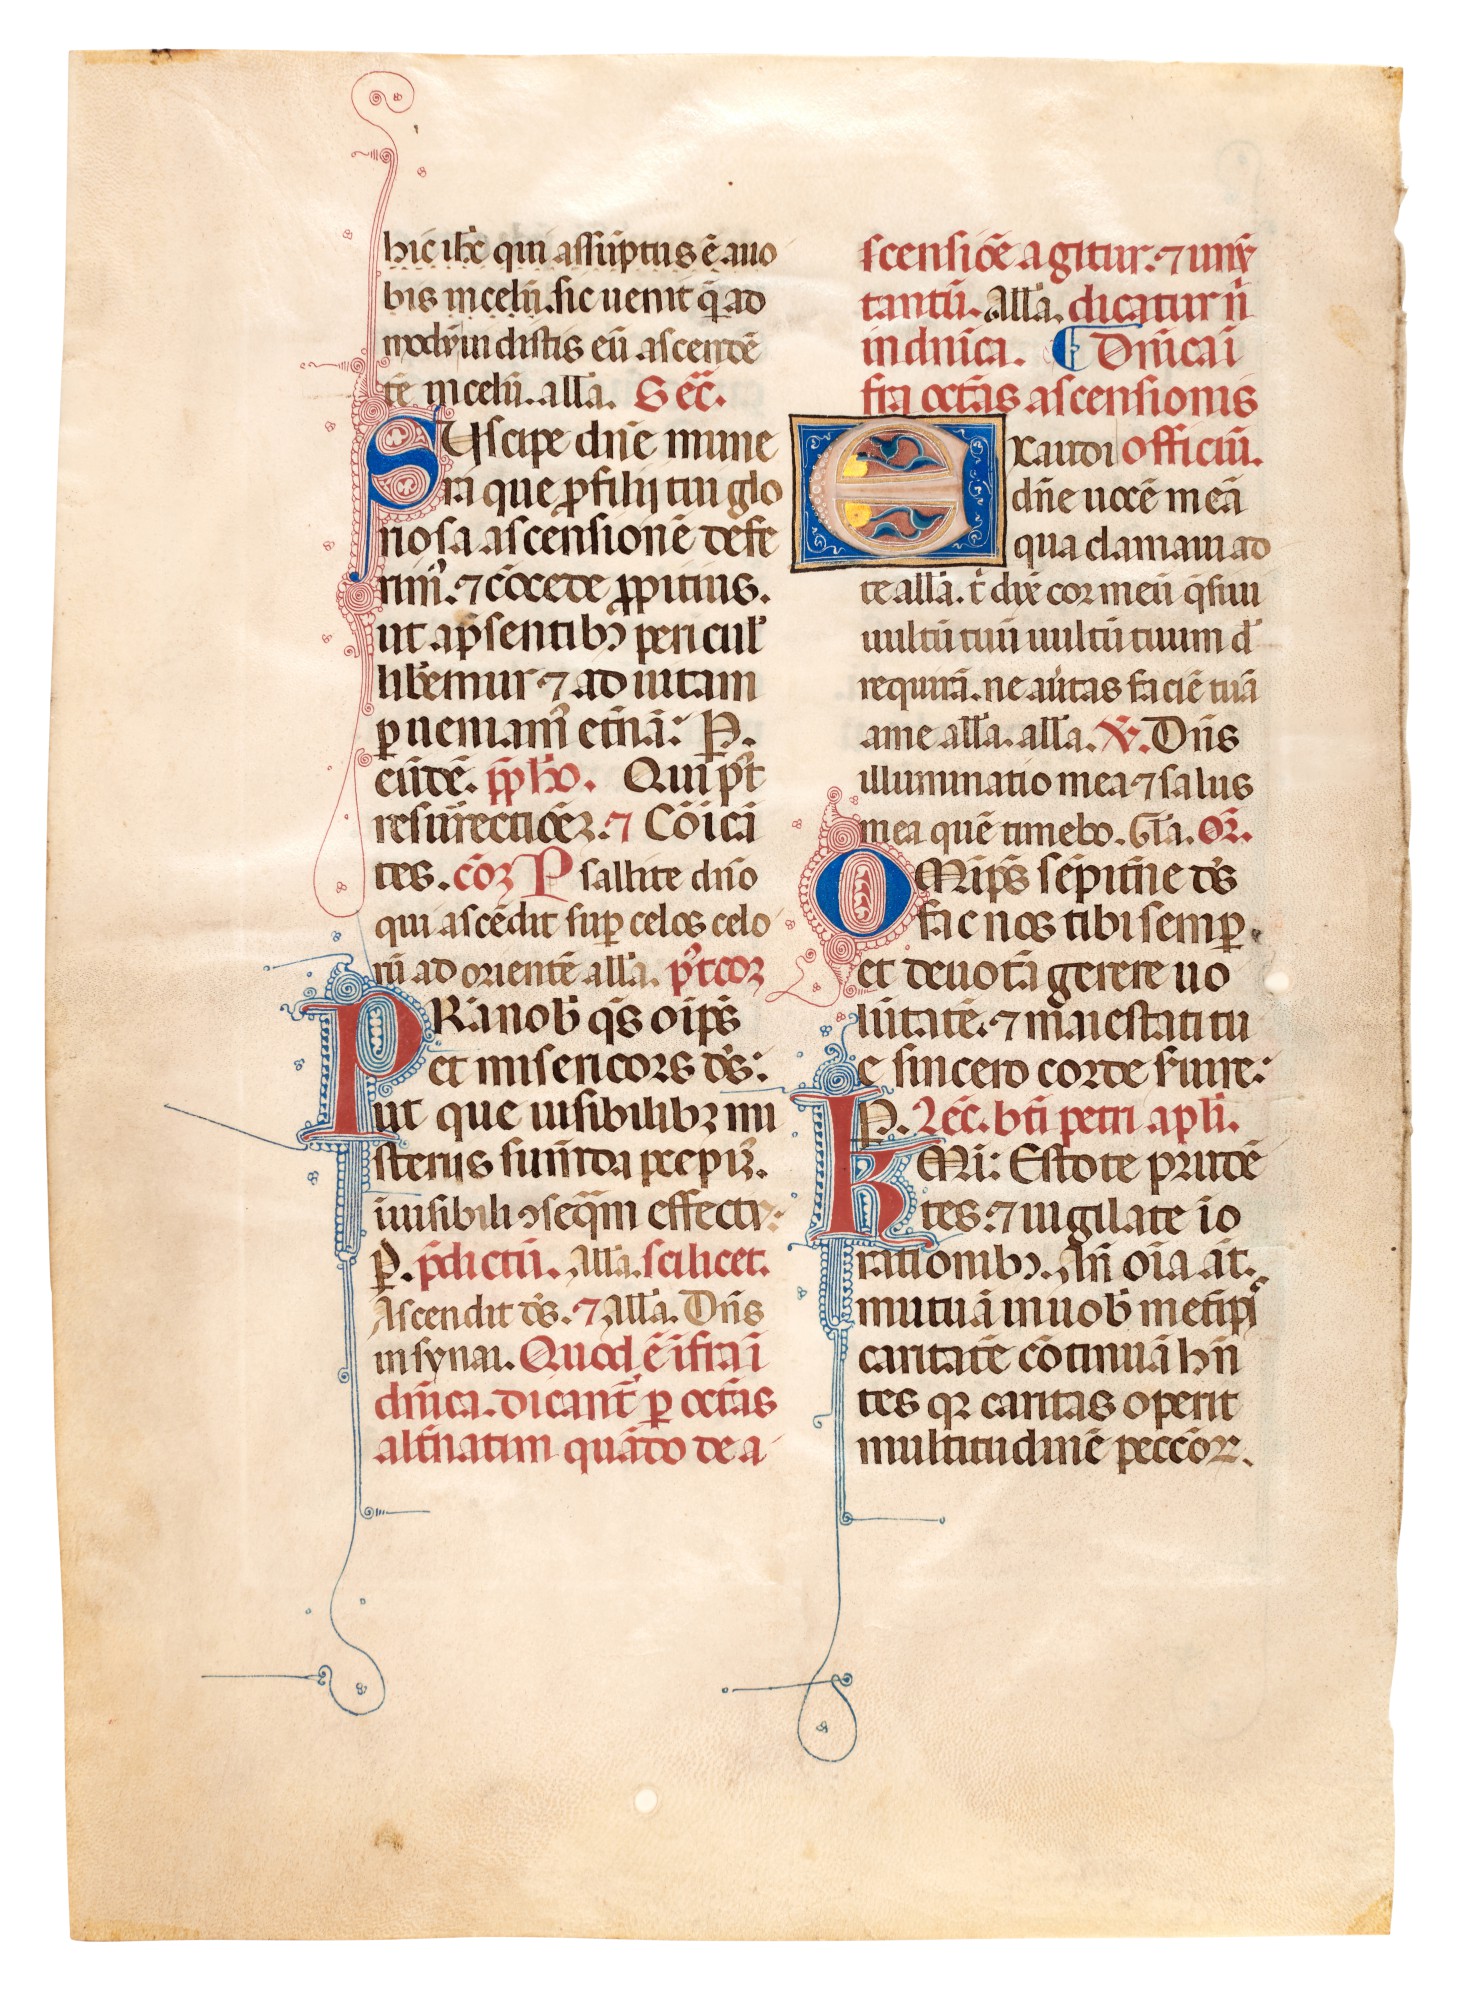 hic ih̄c qui assūptus ē a uo
bis in celū. sic ueniet q̄ ad
modū uidistis eū ascendē
tē in celū. all̄a. Sec̄.
Suscipe dn̄e mune
ra que p filij tui glo
riosa ascensionē defe
rim᷒. ⁊ cōcede p̱pitius.
ut a p̄sentibꝰ pericul̄
libemur ⁊ ad uitam
ꝑueniam᷒ etn̄ā: P̄.
eūdē. p̄p̄h̄o. Qui p᷒t
resurrectiōeꝫ. ⁊ Cōicā
tes. cōꝫ Psallite dn̄o
qui ascēdit suꝑ celos celo
rū ad orientē all̄a. p᷒tcōꝫ
PRa nob̄ q̄s oīp̄s
et misericors d̄s:
ut que uisibilibꝫ mi
steriis sum̄da p̄cepim᷒.
iuisibili ꝯseq̄m effectu:
P̄. p̄dictū. all̄a. scilicet.
Ascendit d̄s. ⁊ all̄a. Dn̄s
in synai. Quod ē īfra ī
dn̄ica. dicant᷒ ꝑ octās
altn̄atim quādo de a
scensiōe agitur. ⁊ unū
tantū. all̄a. dicatur ī
in dn̄ica. Dn̄ica ī
fra octās ascensionis
Exaudi officiū.
dn̄e uocē meā
qua clamaui ad
te all̄a. t᷒ dix̄ cor meū q̄siui
uultū tuū uultū tuum d̄
requirā. ne au᷒tas faciē tuā
a me all̄a. all̄a. V̄. Dn̄s
illuminatio mea ⁊ salus
mea quē timebo. Gl̄a. Or̄.
OMīp̄s sēpit᷒ne d̄s
fac nos tibi semꝑ
et deuotā gerere uo
lūtatē. ⁊ maiestati tu
e sincero corde s᷒uire:
P̄. Lec̄. bt̄i petri apl̄i.
KMi: Estote prudē
tes. ⁊ uigilate ī o
rationibꝰ. An̄ oīa āt.
mutuā in uob̄ metip̄i
caritatē cōtinuā hn̄
tes qꝛ caritas operit
multitudinē peccōꝝ.